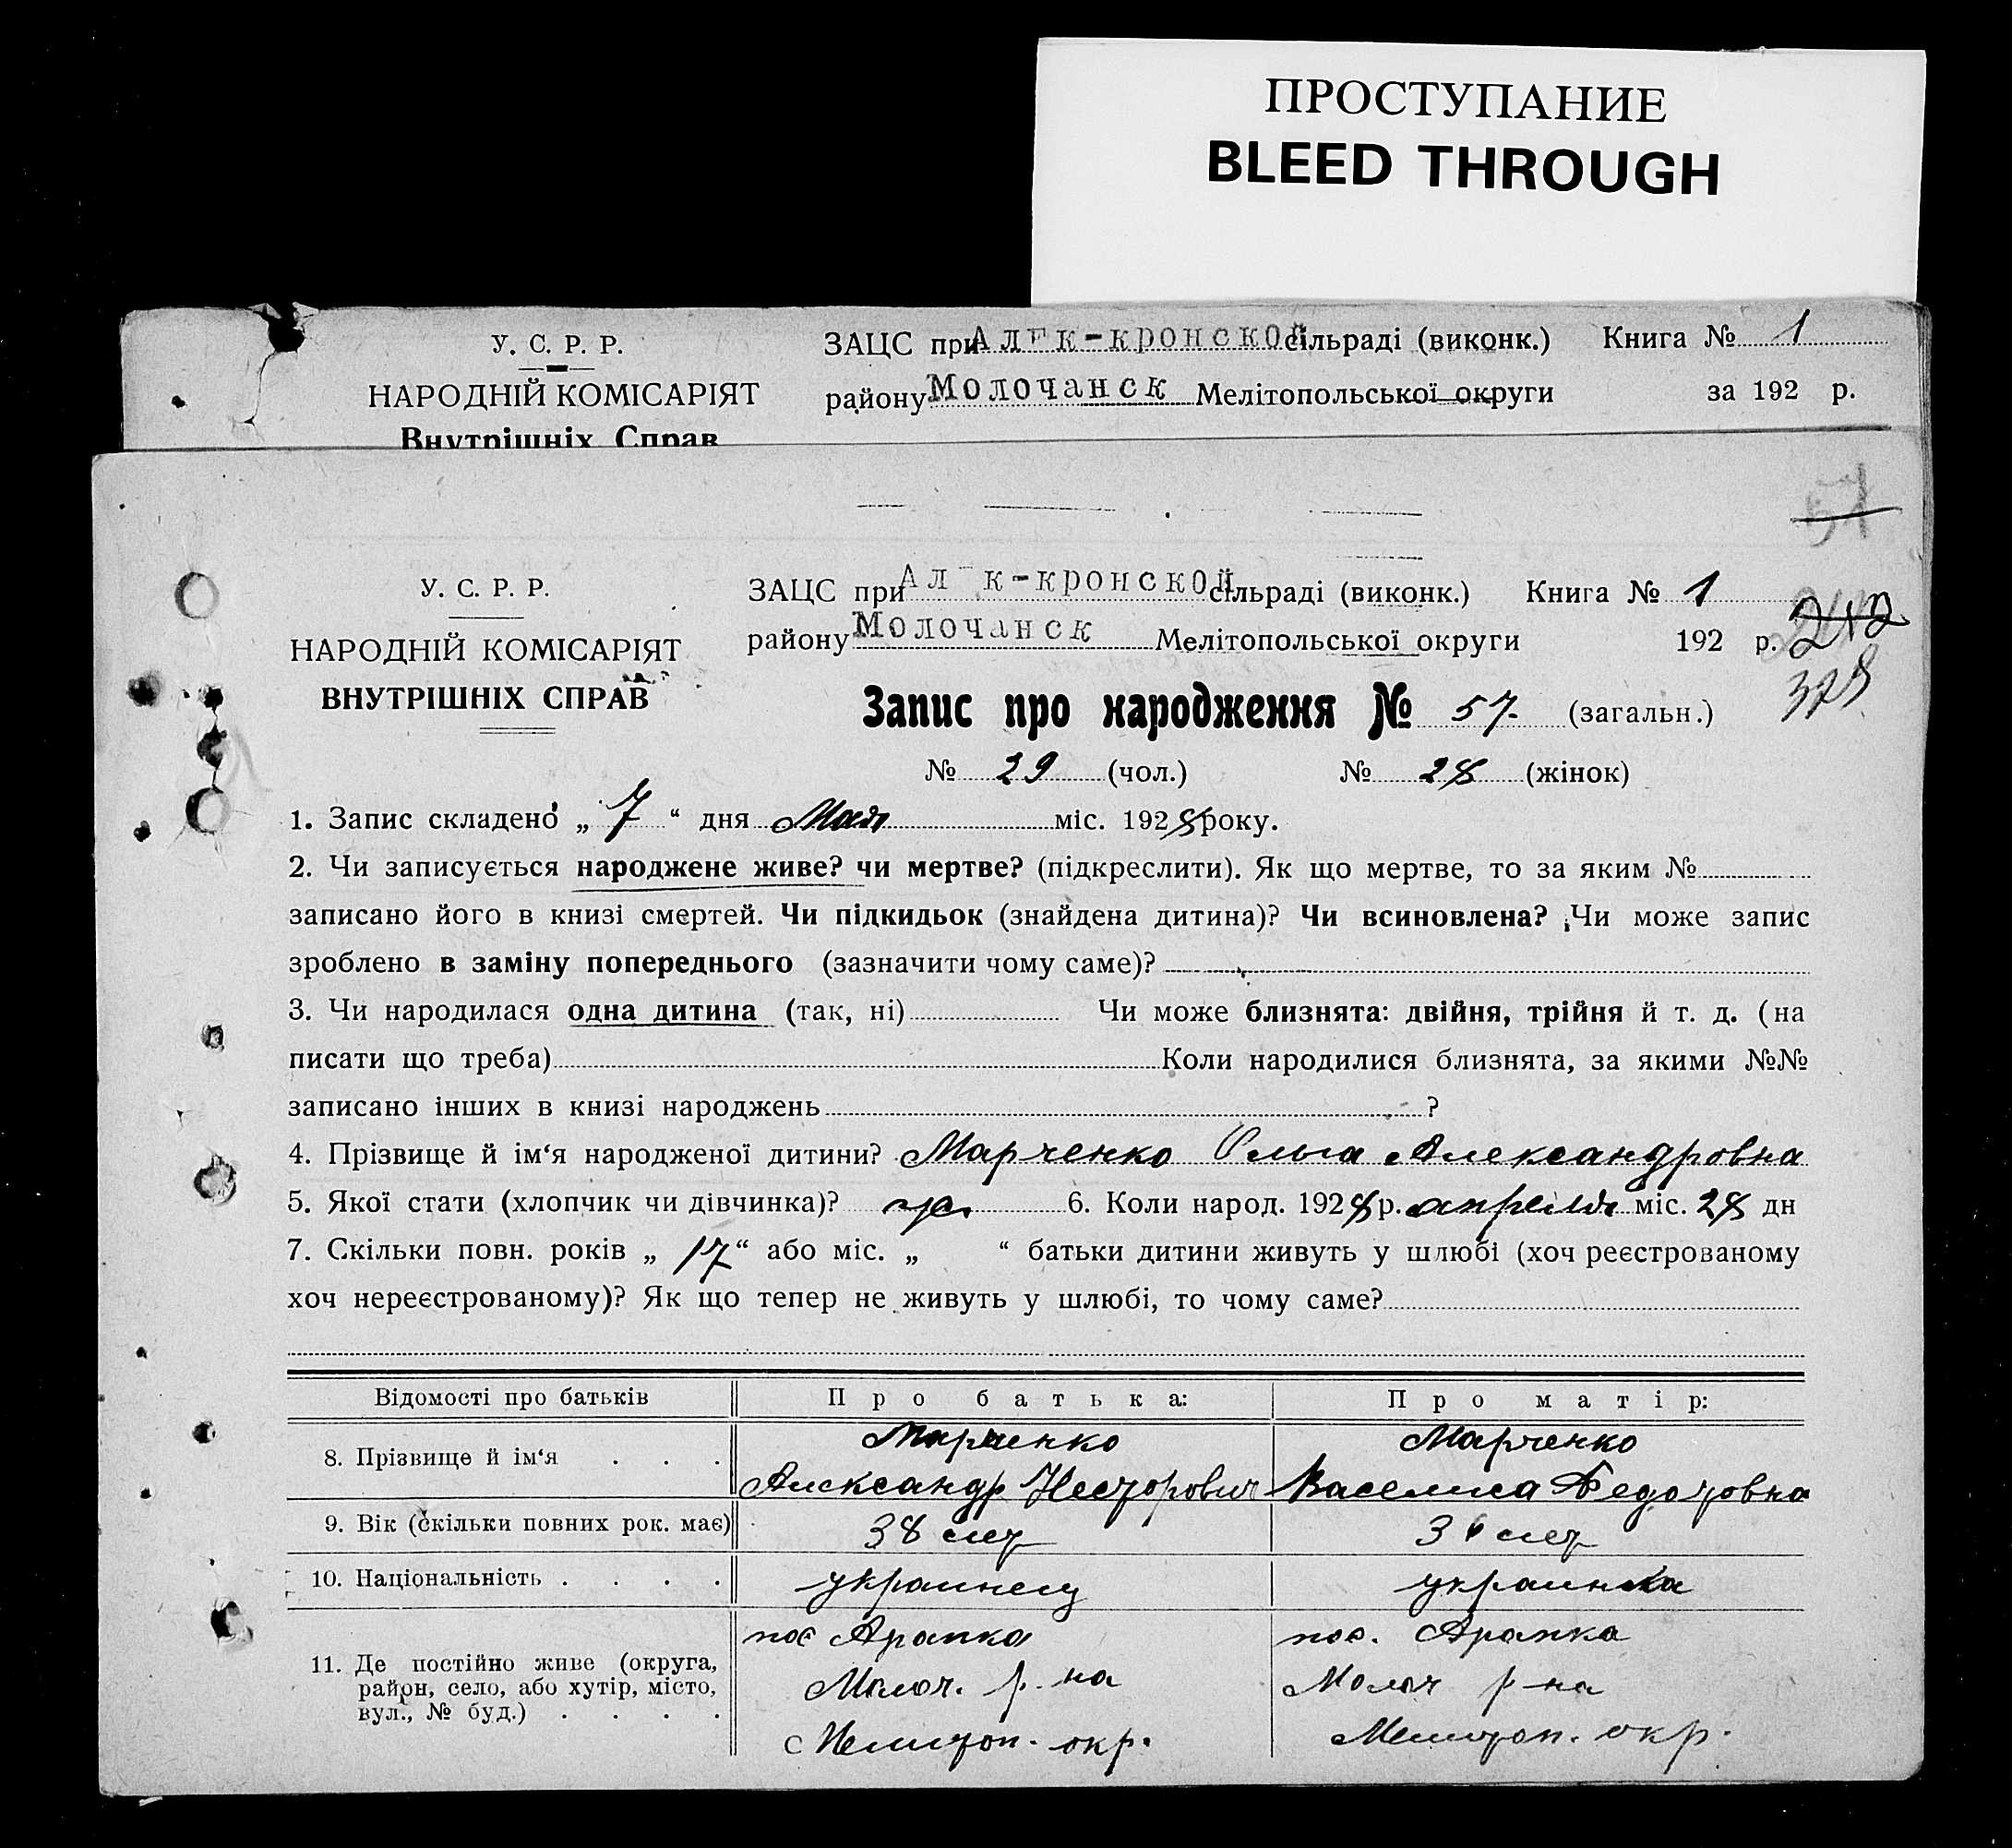 ПРОСТУПАНИЕ
BLEED THROUGH
У. С. Р. Р.
НАРОДНІЙ КОМІСАРІЯТ
Внутрішніх Справ
ЗАЦС при Алек-кронской сільраді (виконк.) Книга № 1
району Молочанск Мелітопольської округи за 192 р.
57
У. С. Р. Р.
НАРОДНІЙ КОМІСАРІЯТ
ВНУТРІШНІХ СПРАВ
ЗАЦС при Ал к-кронской сільраді (виконк.) Книга № 1
району Молочанск Мелітопольської округи 192 р.
212
378
Запис про народження № 57. (загальн.)
№ 29 (чол.) № 28 (жінок)
1. Запис складено „ 7 “ дня Мая міс. 1928 року.
2. Чи записується народжене живе? чи мертве? (підкреслити). Як що мертве, то за яким №
записано його в книзі смертей. Чи підкидьок (знайдена дитина)? Чи всиновлена? Чи може запис
зроблено в заміну попереднього (зазначити чому саме)?
3. Чи народилася одна дитина (так, ні) Чи може близнята: двійня, трійня й т. д. (на
писати що треба) Коли народилися близнята, за якими №№
записано інших в книзі народжень ?
4. Прізвище й ім‘я народженої дитини? Марченко Ольга Александровна
5. Якої стати (хлопчик чи дівчинка)? 6. Коли народ. 1928 р. апреля міс. 28 дн
7. Скільки повн. років „ 17 “ або міс. „ “ батьки дитини живуть у шлюбі (хоч реєстрованому
хоч нереєстрованому)? Як що тепер не живуть у шлюбі, то чому саме?
Відомості про батьків Про батька: Про матір:
8. Прізвище й ім‘я . . .
Марченко
Александр Несторович
Марченко
Васелиса Федотовна
9. Вік (скільки повних рок. має) 38 лет 3 лет
10. Національність . . . . украинец украинка
11. Де постійно живе (округа,
район, село, або хутір, місто,
вул., № буд.) . . . .
пос Арапка
Молоч. р-на
Мелитоп. окр.
пос. Арапка
Молоч р-на
Мелитоп. окр.